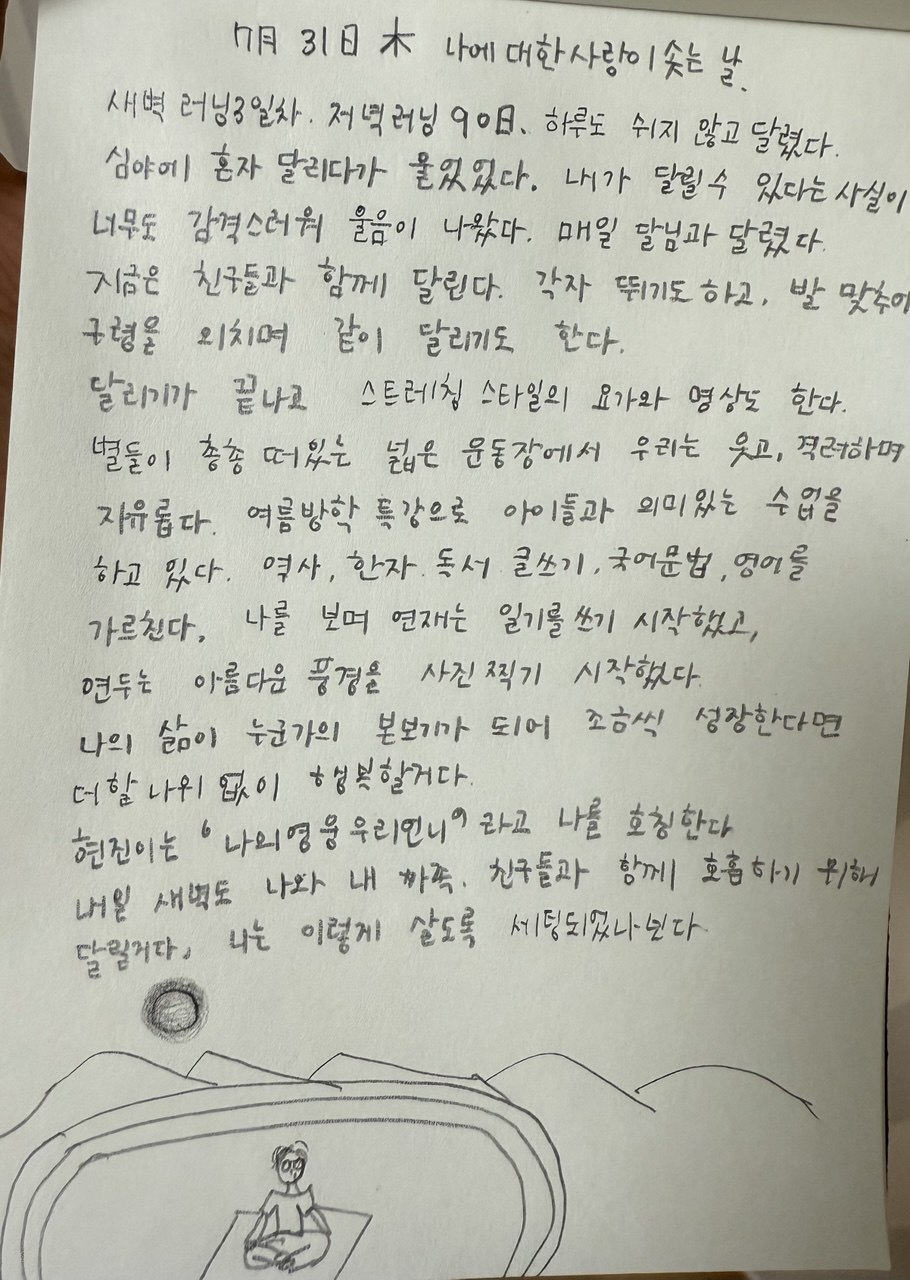 7月 31日 木 나에 대한 사랑이 솟는 날.
새벽 러닝3일차. 저녁러닝 90日. 하루도 쉬지 않고 달렸다.
심야에 혼자 달리다가 울었었다. 내가 달릴 수 있다는 사실이
너무도 감격스러워 울음이 나왔다. 매일 달님과 달렸다.
지금은 친구들과 함께 달린다. 각자 뛰기도 하고, 발 맞추어
구령을 외치며 같이 달리기도 한다.
달리기가 끝나고 스트레칭 스타일의 요가와 명상도 한다.
별들이 총총 떠있는 넓은 운동장에서 우리는 웃고, 격려하며
자유롭다. 여름방학 특강으로 아이들과 의미있는 수업을
하고 있다. 역사, 한자. 독서 글쓰기, 국어문법, 영어를
가르친다. 나를 보며 연재는 일기를 쓰기 시작했고,
연두는 아름다운 풍경을 사진 찍기 시작했다.
나의 삶이 누군가의 본보기가 되어 조금씩 성장한다면
더할 나위 없이 행복할거다.
현진이는 '나의영웅우리언니' 라고 나를 호칭한다
내일 새벽도 나와 내 가족. 친구들과 함께 호흡하기 위해
달릴거다. 나는 이렇게 살도록 세팅되었나보다